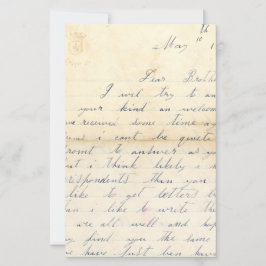 May 10th 1
Dear Broth
I will try to an
your kind an welcom
we received some time a
i cant be quite
promt to answer as yo
i think likely
respondents than you
like to get letters b
i like to write th
we are all well and hop
find you the same
have just ben ha